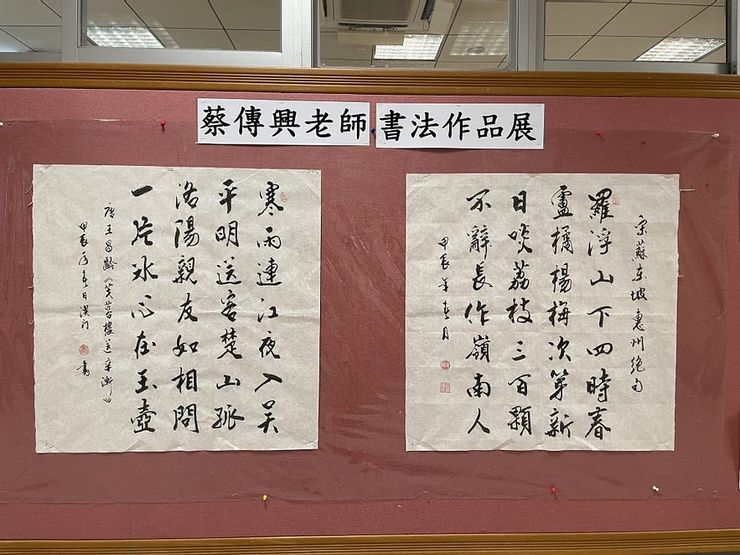 蔡傳興老師 書法作品展
宋蘇東坡惠州絕句
羅浮山下四時春
盧橘楊梅次第新
日啖荔枝三百顆
不辭長作嶺南人
甲辰年春月
寒雨連江夜入吳
平明送客楚山孤
洛陽親友如相問
一片冰心在玉壺
唐王昌齡芙蓉樓送辛漸
甲辰年春日
書